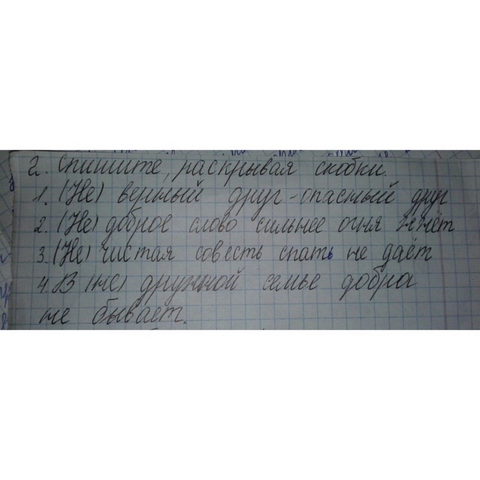 2. Спишите, раскрывая скобки.
1. (Не) верный друг - опасный друг
2. (Не) доброе слово сильнее огня жжёт
3. (Не) чистая совесть спать не даёт
4. В (не) дружной семье добра
не бывает.